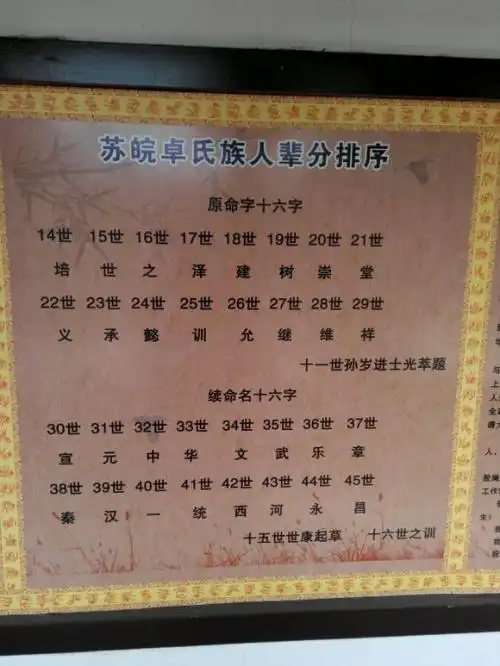 苏皖卓氏族人辈分排序
原命字十六字
14世 15世 16世 17世 18世 19世 20世 21世
培 世 之 泽 建 树 崇 堂
22世 23世 24世 25世 26世 27世 28世 29世
义 承 懿 训 允 继 维 祥
十一世孙岁进士光萃题
续命名十六字
30世 31世 32世 33世 34世 35世 36世 37世
宣 元 中 华 文 武 乐 章
38世 39世 40世 41世 42世 43世 44世 45世
秦 汉 一 统 西 河 永 昌
十五世世康起草 十六世之训
与
上
人
全
请
人，
工作
生！